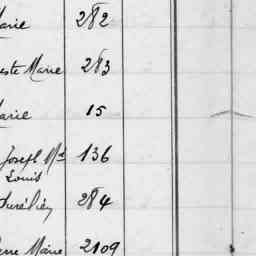 Marie 282
este Marie 283
Marie 15
Joseph Mie 136
Louis
Aurélien 284
erre Marie 2109